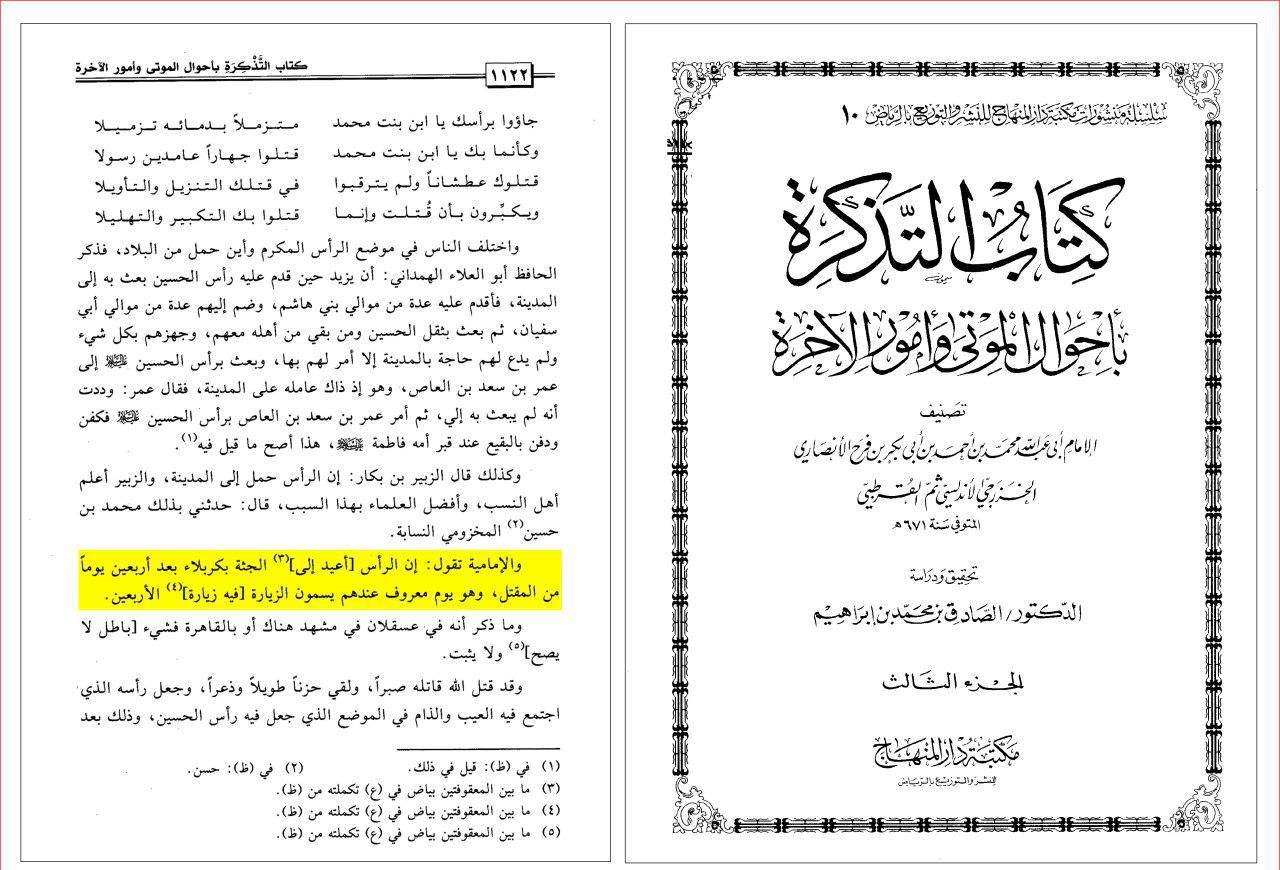 سلسلة منشورات مكتبة دار المنهاج للنشر والتوزيع بالرياض ١٠
كتاب التذكرة
بأحوال الموتى وأمور الآخرة
تصنيف
الإمام أبي عبد الله محمد بن أحمد بن أبي بكر بن فرح الأنصاري
الخزرجي الأندلسي ثم القرطبي
المتوفى سنة ٦٧١ هـ
تحقيق ودراسة
الدكتور/الصادق بن محمد بن إبراهيم
الجزء الثالث
مكتبة دار المنهاج
للنشر والتوزيع بالرياض
١١٢٢ كتاب التَّذْكِرَةِ بأحوال الموتى وأمور الآخرة
جاؤوا برأسك يا ابن بنت محمد متـزملاً بـدمـائـه تـزمـيـلا
وكأنما بك يا ابن بنت محمد قـتـلـوا جـهـاراً عـامـديـن رسولا
قـتـلوك عـطـشـانـاً ولـم يـتـرقـبـوا في قـتـلـك الـتـنـزيـل والـتـأويـلا
ويـكـبِّـرون بـأن قُـتـلـت وإنـمـا قتلوا بك التكبير والتهليلا
واختلف الناس في موضع الرأس المكرم وأين حمل من البلاد، فذكر
الحافظ أبو العلاء الهمداني: أن يزيد حين قدم عليه رأس الحسين بعث به إلى
المدينة، فأقدم عليه عدة من موالي بني هاشم، وضم إليهم عدة من موالي أبي
سفيان، ثم بعث بثقل الحسين ومن بقي من أهله معهم، وجهزهم بكل شيء
ولم يدع لهم حاجة بالمدينة إلا أمر لهم بها، وبعث برأس الحسين عليه السلام إلى
عمر بن سعد بن العاص، وهو إذ ذاك عامله على المدينة، فقال عمر: وددت
أنه لم يبعث به إلي، ثم أمر عمر بن سعد بن العاص برأس الحسين عليه السلام فكفن
ودفن بالبقيع عند قبر أمه فاطمة عليها السلام، هذا أصح ما قيل فيه(١).
وكذلك قال الزبير بن بكار: إن الرأس حمل إلى المدينة، والزبير أعلم
أهل النسب، وأفضل العلماء بهذا السبب، قال: حدثني بذلك محمد بن
حسين(٢) المخزومي النسابة.
والإمامية تقول: إن الرأس [أعيد إلى](٣) الجثة بكربلاء بعد أربعين يوماً
من المقتل، وهو يوم معروف عندهم يسمون الزيارة [فيه زيارة](٤) الأربعين.
وما ذكر أنه في عسقلان في مشهد هناك أو بالقاهرة فشيء [باطل لا
يصح](٥) ولا يثبت.
وقد قتل الله قاتله صبراً، ولقي حزناً طويلاً وذعراً، وجعل رأسه الذي
اجتمع فيه العيب والذام في الموضع الذي جعل فيه رأس الحسين، وذلك بعد
(١) في (ظ): قيل في ذلك. (٢) في (ظ): حسن.
(٣) ما بين المعقوفتين بياض في (ع) تكملته من (ظ).
(٤) ما بين المعقوفتين بياض في (ع) تكملته من (ظ).
(٥) ما بين المعقوفتين بياض في (ع) تكملته من (ظ).